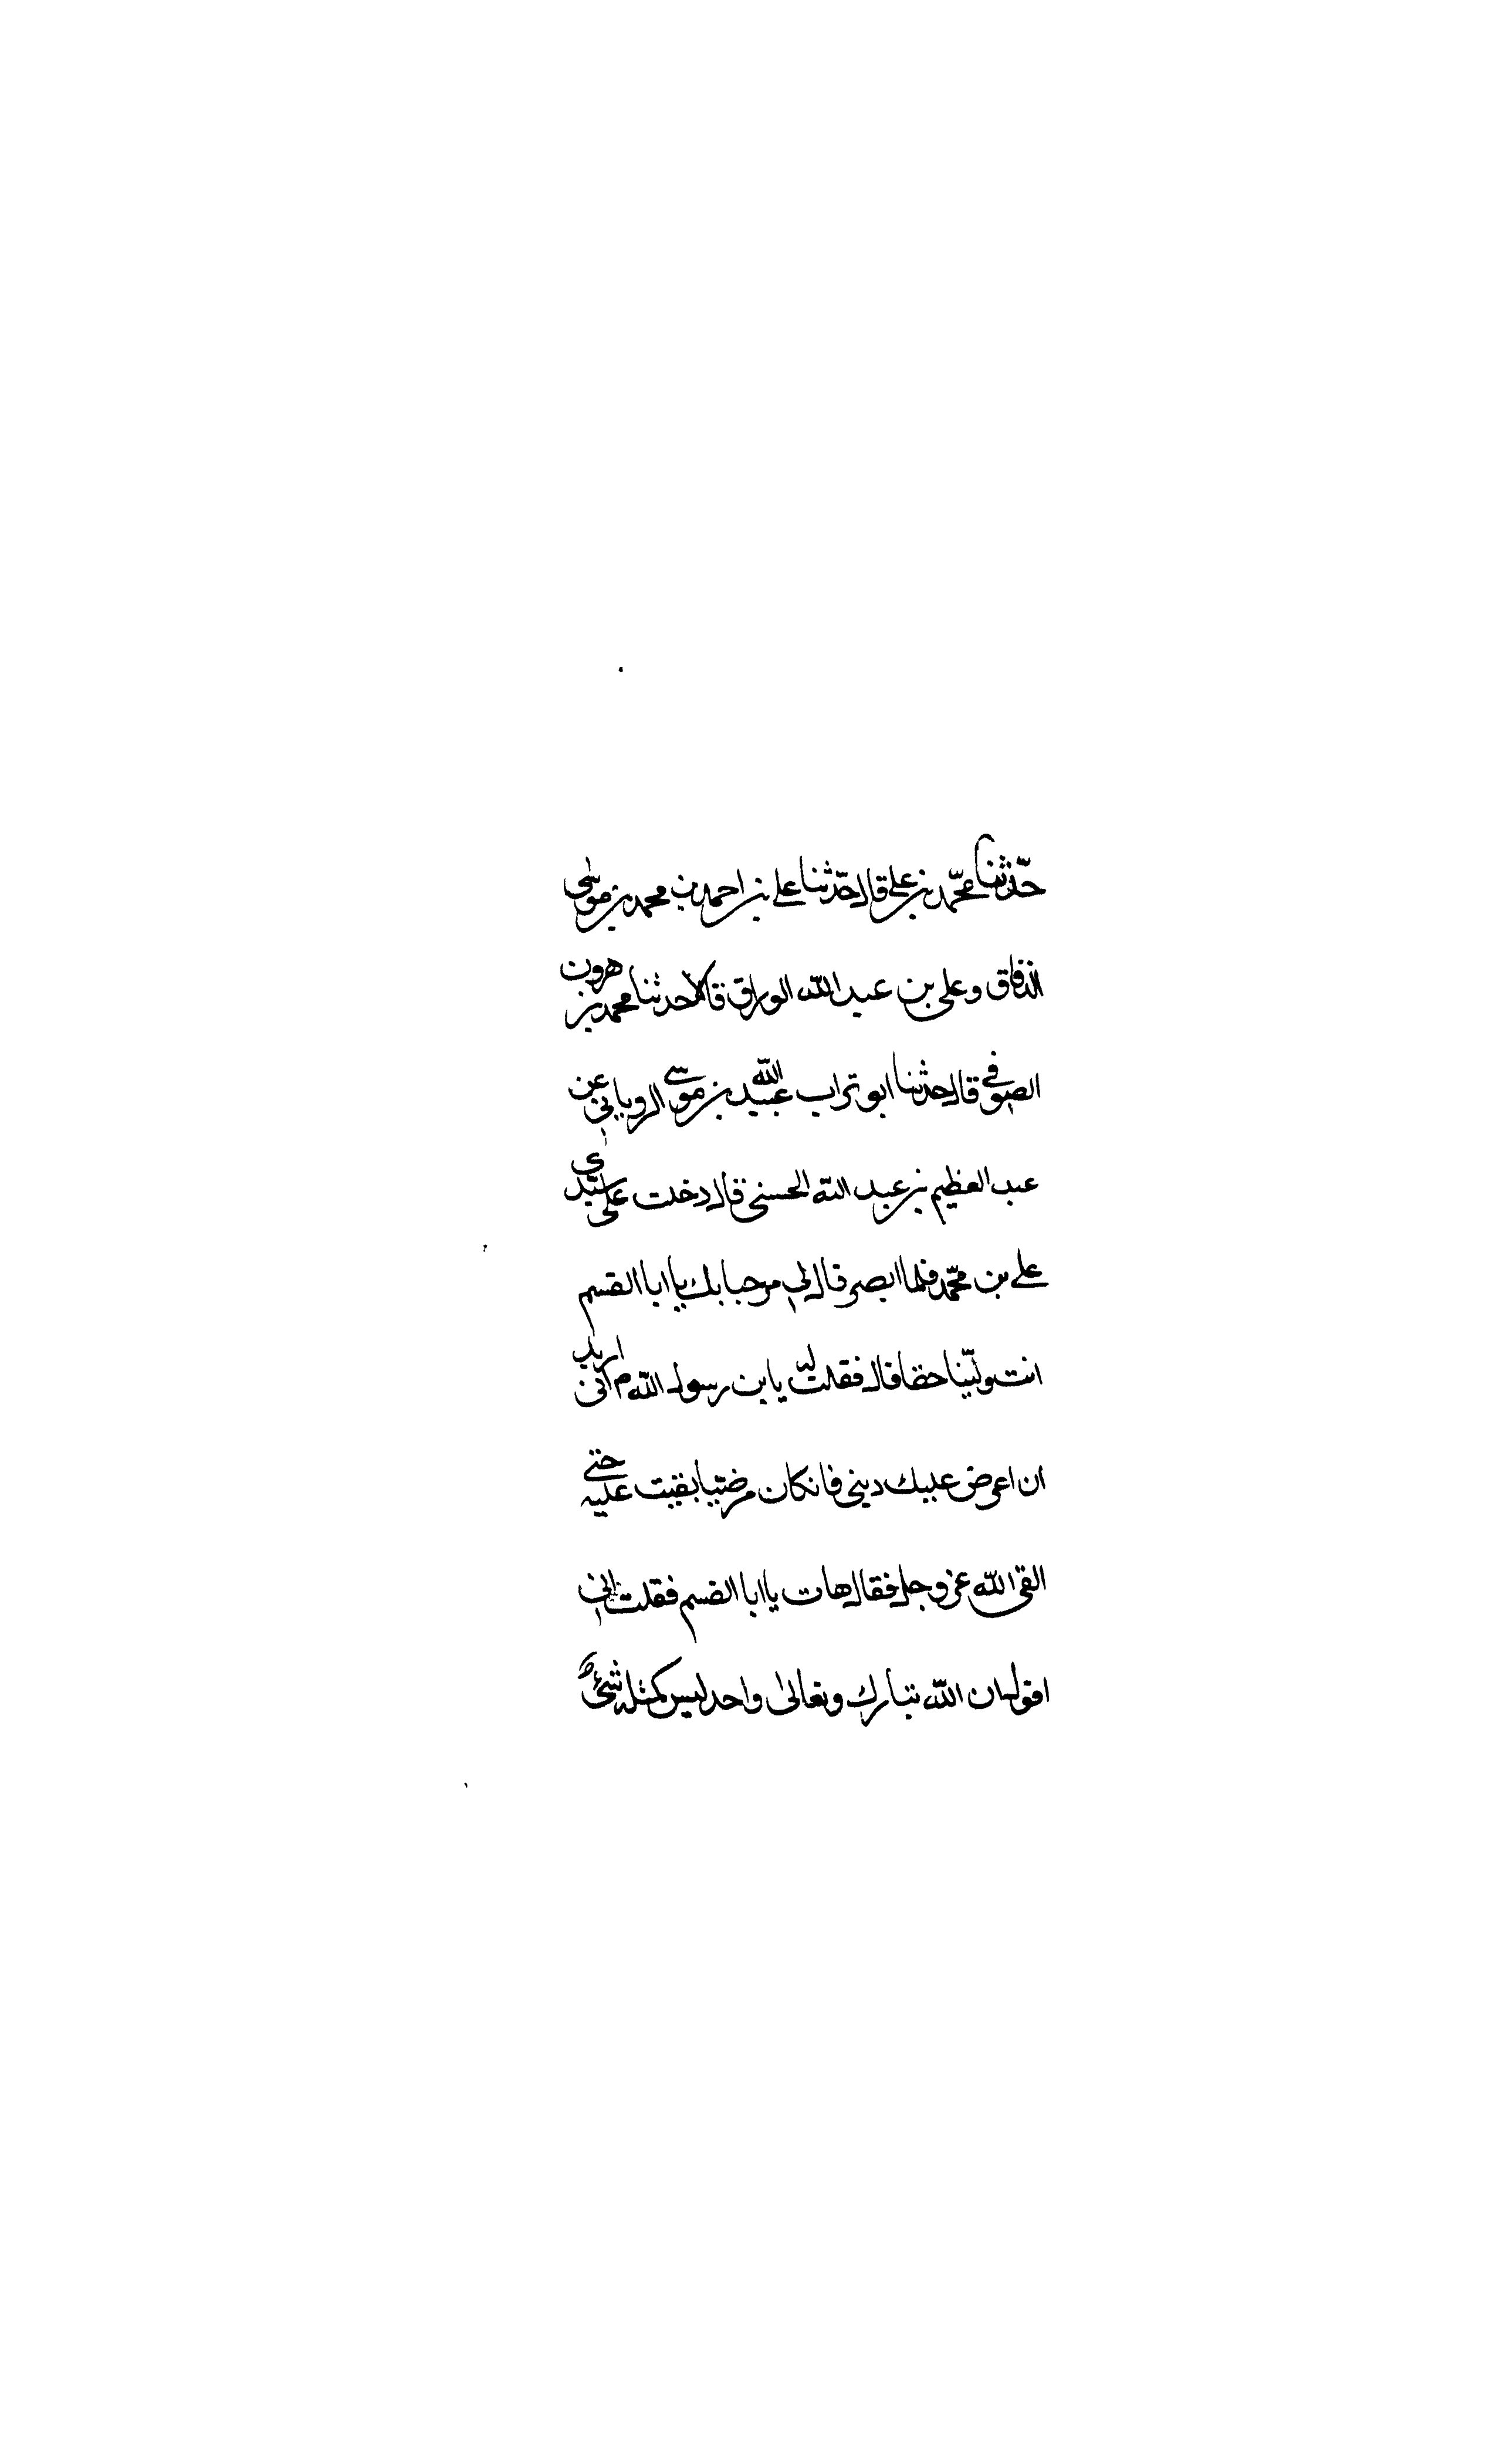 حدّثنا محمّد بن علي قال حدّثنا علي بن احمد بن محمد بن موسى
الدقاق وعلي بن عبد اللّه الوراق قالا حدثنا محمد بن هرون
الصوفي قال حدثنا ابو تراب عبيد اللّه بن موسى الروياني عن
عبد العظيم بن عبد اللّه الحسني قال دخلت على سيّدي
علي بن محمّد فلما ابصر قال لي مرحبا بك يا ابا القسم
انت وليّنا حقا قال فقلت له يا بن رسول اللّه م اني اريد
ان اعرض عليك ديني فان كان مرضيّا بقيت عليه حتى
القى اللّه عز وجل فقال هات يا ابا القسم فقلت اني
اقول ان اللّه تبارك وتعالى واحد ليس كمثله شئ